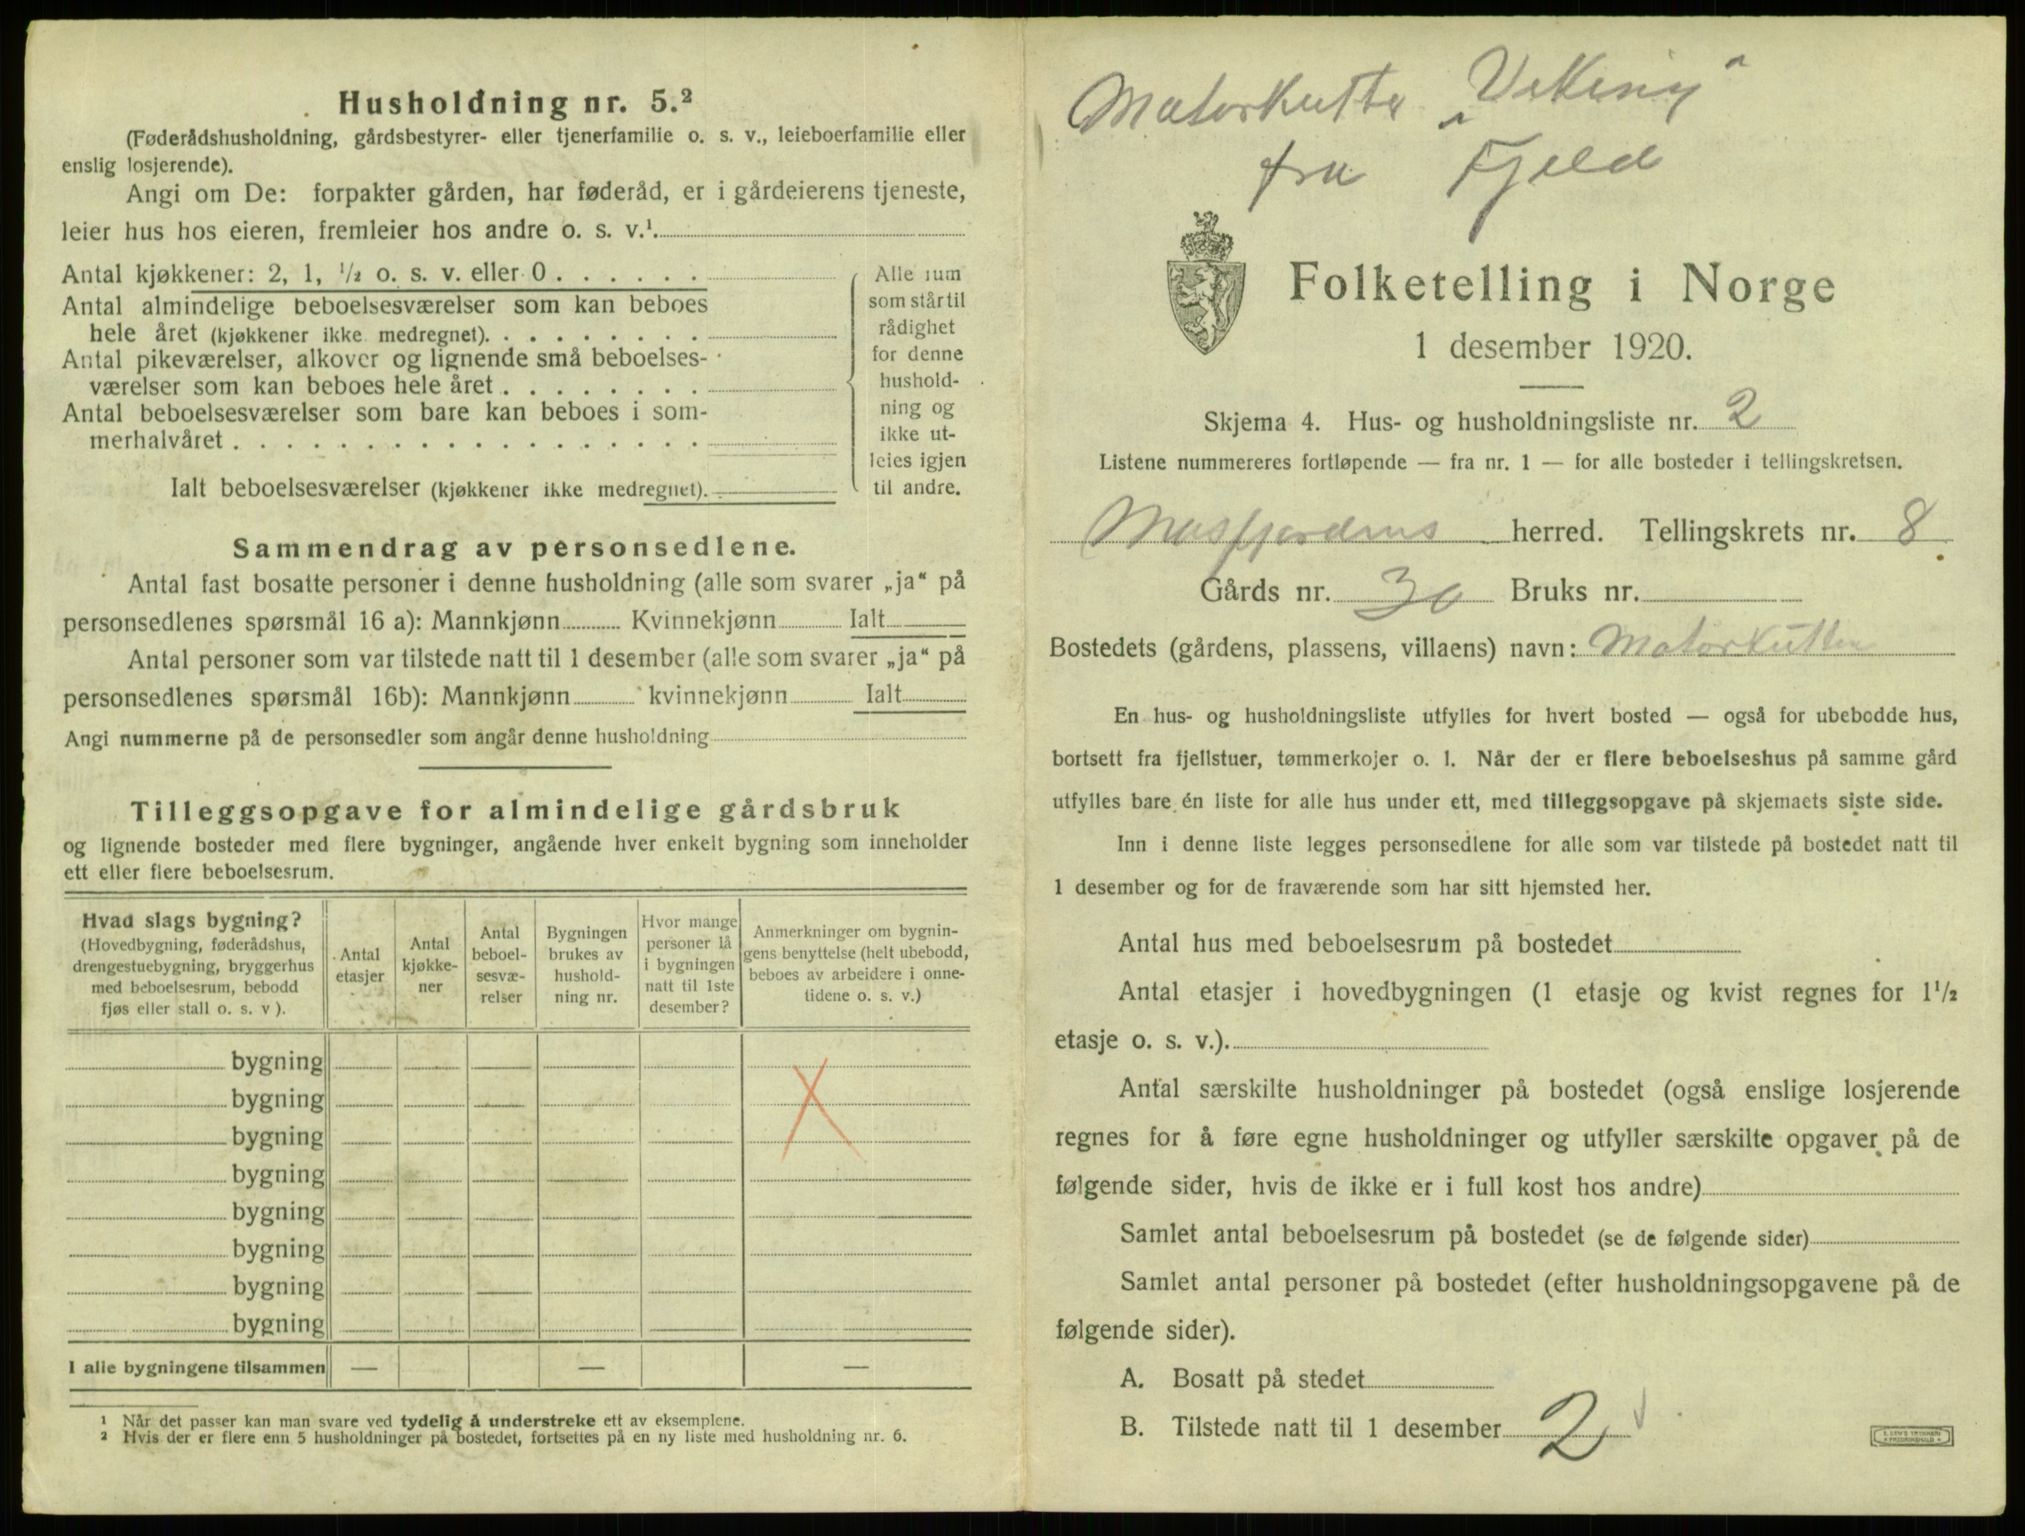 Husholdning nr. 5.²
(Føderådshusholdning, gårdsbestyrer- eller tjenerfamilie o. s. v., leieboerfamilie eller
enslig losjerende).
Angi om De: forpakter gården, har føderåd, er i gårdeierens tjeneste,
leier hus hos eieren, fremleier hos andre o. s. v.¹
Antal kjøkkener: 2, 1, ½ o. s. v. eller 0 . . . . . .
Antal almindelige beboelsesværelser som kan beboes
hele året (kjøkkener ikke medregnet). . . . . . . . .
Antal pikeværelser, alkover og lignende små beboelses-
værelser som kan beboes hele året . . . . . . . .
Antal beboelsesværelser som bare kan beboes i som-
merhalvåret . . . . . . . . . . . . . . . . . .
Ialt beboelsesværelser (kjøkkener ikke medregnet).
Alle rum
som står til
rådighet
for denne
hushold-
ning og
ikke ut-
leies igjen
til andre.
Sammendrag av personsedlene.
Antal fast bosatte personer i denne husholdning (alle som svarer „ja“ på
personsedlenes spørsmål 16 a): Mannkjønn Kvinnekjønn Ialt
Antal personer som var tilstede natt til 1 desember (alle som svarer „ja“ på
personsedlenes spørsmål 16b): Mannkjønn kvinnekjønn Ialt
Angi nummerne på de personsedler som angår denne husholdning
Tilleggsopgave for almindelige gårdsbruk
og lignende bosteder med flere bygninger, angående hver enkelt bygning som inneholder
ett eller flere beboelsesrum.
Hvad slags bygning?
(Hovedbygning, føderådshus,
drengestuebygning, bryggerhus
med beboelsesrum, bebodd
fjøs eller stall o. s. v ).
Antal
etasjer
Antal
kjøkke-
ner
Antal
beboel-
sesvæ-
relser
Bygningen
brukes av
hushold-
ning nr.
Hvor mange
personer lå
i bygningen
natt til 1ste
desember?
Anmerkninger om bygnin-
gens benyttelse (helt ubebodd,
beboes av arbeidere i onne-
tidene o. s. v.)
bygning
bygning
bygning
bygning
bygning
bygning
bygning
bygning
I alle bygningene tilsammen — — —
¹ Når det passer kan man svare ved tydelig å understreke ett av eksemplene.
² Hvis der er flere enn 5 husholdninger på bostedet, fortsettes på en ny liste med husholdning nr. 6.
Motorkutter „Viking“
fra Fjeld
Folketelling i Norge
1 desember 1920.
Skjema 4. Hus- og husholdningsliste nr. 2
Listene nummereres fortløpende — fra nr. 1 — for alle bosteder i tellingskretsen.
Masfjordens herred. Tellingskrets nr. 8
Gårds nr. 30 Bruks nr.
Bostedets (gårdens, plassens, villaens) navn: Motorkutter
En hus- og husholdningsliste utfylles for hvert bosted — også for ubebodde hus,
bortsett fra fjellstuer, tømmerkojer o. l. Når der er flere beboelseshus på samme gård
utfylles bare én liste for alle hus under ett, med tilleggsopgave på skjemaets siste side.
Inn i denne liste legges personsedlene for alle som var tilstede på bostedet natt til
1 desember og for de fraværende som har sitt hjemsted her.
Antal hus med beboelsesrum på bostedet
Antal etasjer i hovedbygningen (1 etasje og kvist regnes for 1½
etasje o. s. v.).
Antal særskilte husholdninger på bostedet (også enslige losjerende
regnes for å føre egne husholdninger og utfyller særskilte opgaver på de
følgende sider, hvis de ikke er i full kost hos andre)
Samlet antal beboelsesrum på bostedet (se de følgende sider)
Samlet antal personer på bostedet (efter husholdningsopgavene på de
følgende sider).
A. Bosatt på stedet
B. Tilstede natt til 1 desember 2